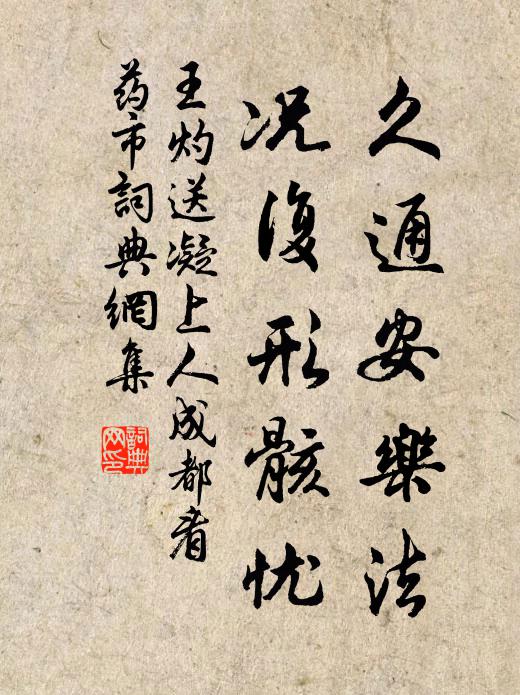 久通安樂法
况復形骸忧
王灼送凝上人成都看
药市詞典網集
詞典网印